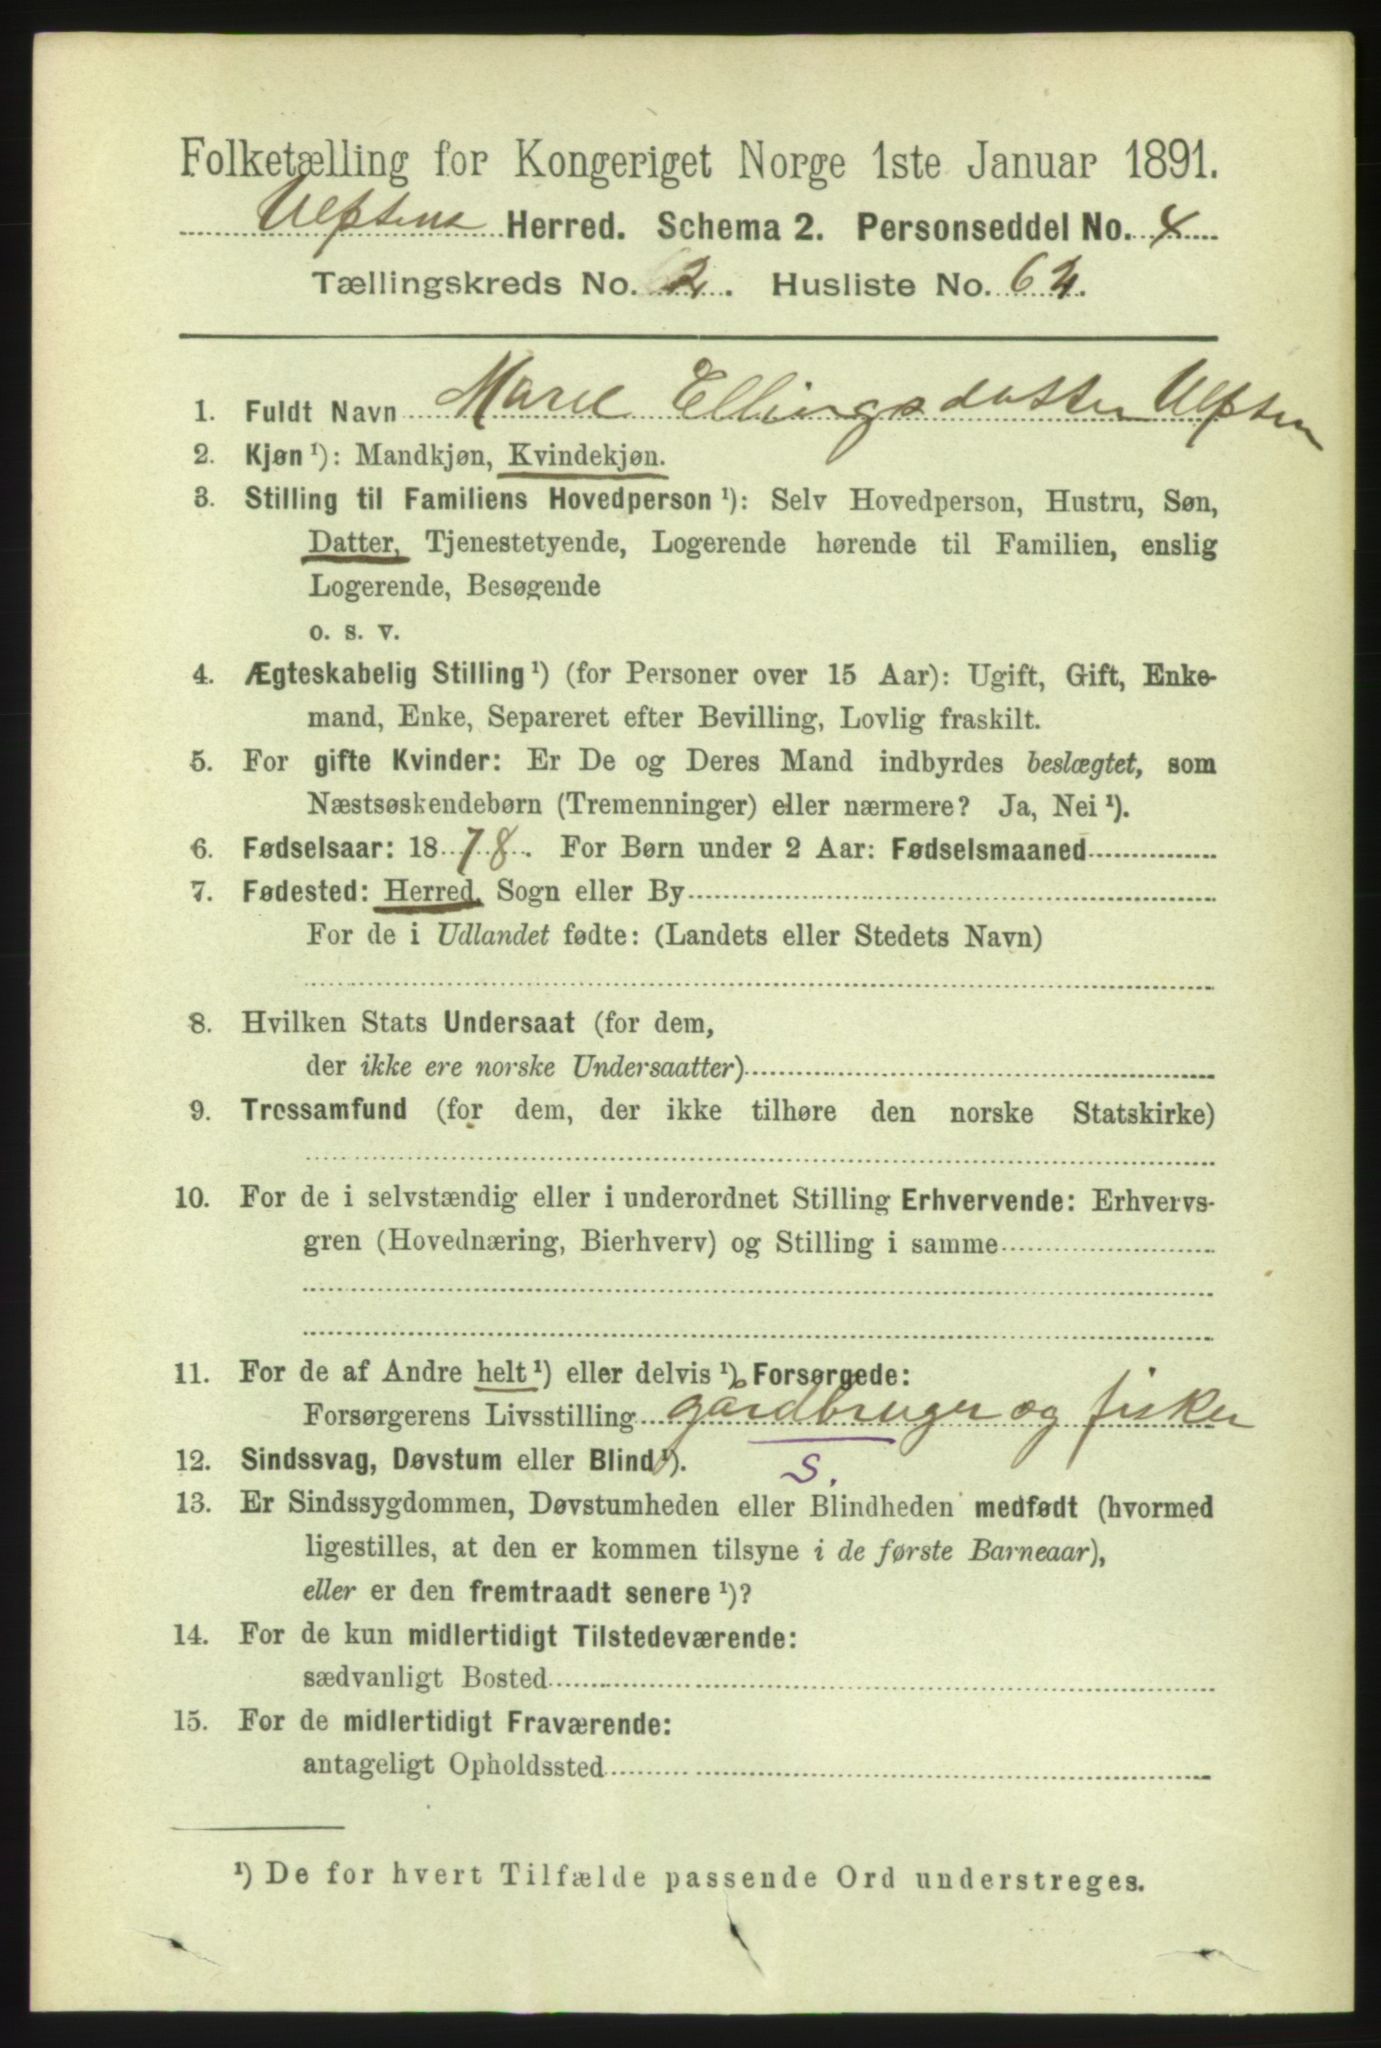 Folketælling for Kongeriget Norge 1ste Januar 1891.
Ulfsten Herred. Schema 2. Personseddel No. 4
Tællingskreds No. 2. Husliste No. 62.
1. Fuldt Navn Marie Ellingsdatter Ulfsten
2. Kjøn ¹): Mandkjøn, Kvindekjøn.
3. Stilling til Familiens Hovedperson ¹): Selv Hovedperson, Hustru, Søn,
Datter, Tjenestetyende, Logerende hørende til Familien, enslig
Logerende, Besøgende
o. s. v.
4. Ægteskabelig Stilling ¹) (for Personer over 15 Aar): Ugift, Gift, Enke-
mand, Enke, Separeret efter Bevilling, Lovlig fraskilt.
5. For gifte Kvinder: Er De og Deres Mand indbyrdes beslægtet, som
Næstsøskendebørn (Tremenninger) eller nærmere? Ja, Nei ¹).
6. Fødselsaar: 1878. For Børn under 2 Aar: Fødselsmaaned
7. Fødested: Herred, Sogn eller By
For de i Udlandet fødte: (Landets eller Stedets Navn)
8. Hvilken Stats Undersaat (for dem,
der ikke ere norske Undersaatter)
9. Trossamfund (for dem, der ikke tilhøre den norske Statskirke)
10. For de i selvstændig eller i underordnet Stilling Erhvervende: Erhvervs-
gren (Hovednæring, Bierhverv) og Stilling i samme
11. For de af Andre helt ¹) eller delvis ¹) Forsørgede:
Forsørgerens Livsstilling gårdbruger og fisker
12. Sindssvag, Døvstum eller Blind ¹). S.
13. Er Sindssygdommen, Døvstumheden eller Blindheden medfødt (hvormed
ligestilles, at den er kommen tilsyne i de første Barneaar),
eller er den fremtraadt senere ¹)?
14. For de kun midlertidigt Tilstedeværende:
sædvanligt Bosted
15. For de midlertidigt Fraværende:
antageligt Opholdssted
¹) De for hvert Tilfælde passende Ord understreges.